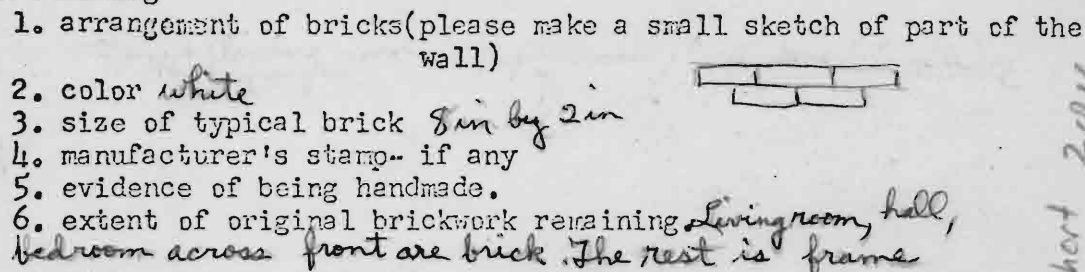 1. arrangement of bricks(please make a small sketch of part of the
wall)
2. color white
3. size of typical brick 8 in by 2 in
4. manufacturer's stamp-- if any
5. evidence of being handmade.
6. extent of original brickwork remaining Living room, hall,
bedroom across front are brick. The rest is frame